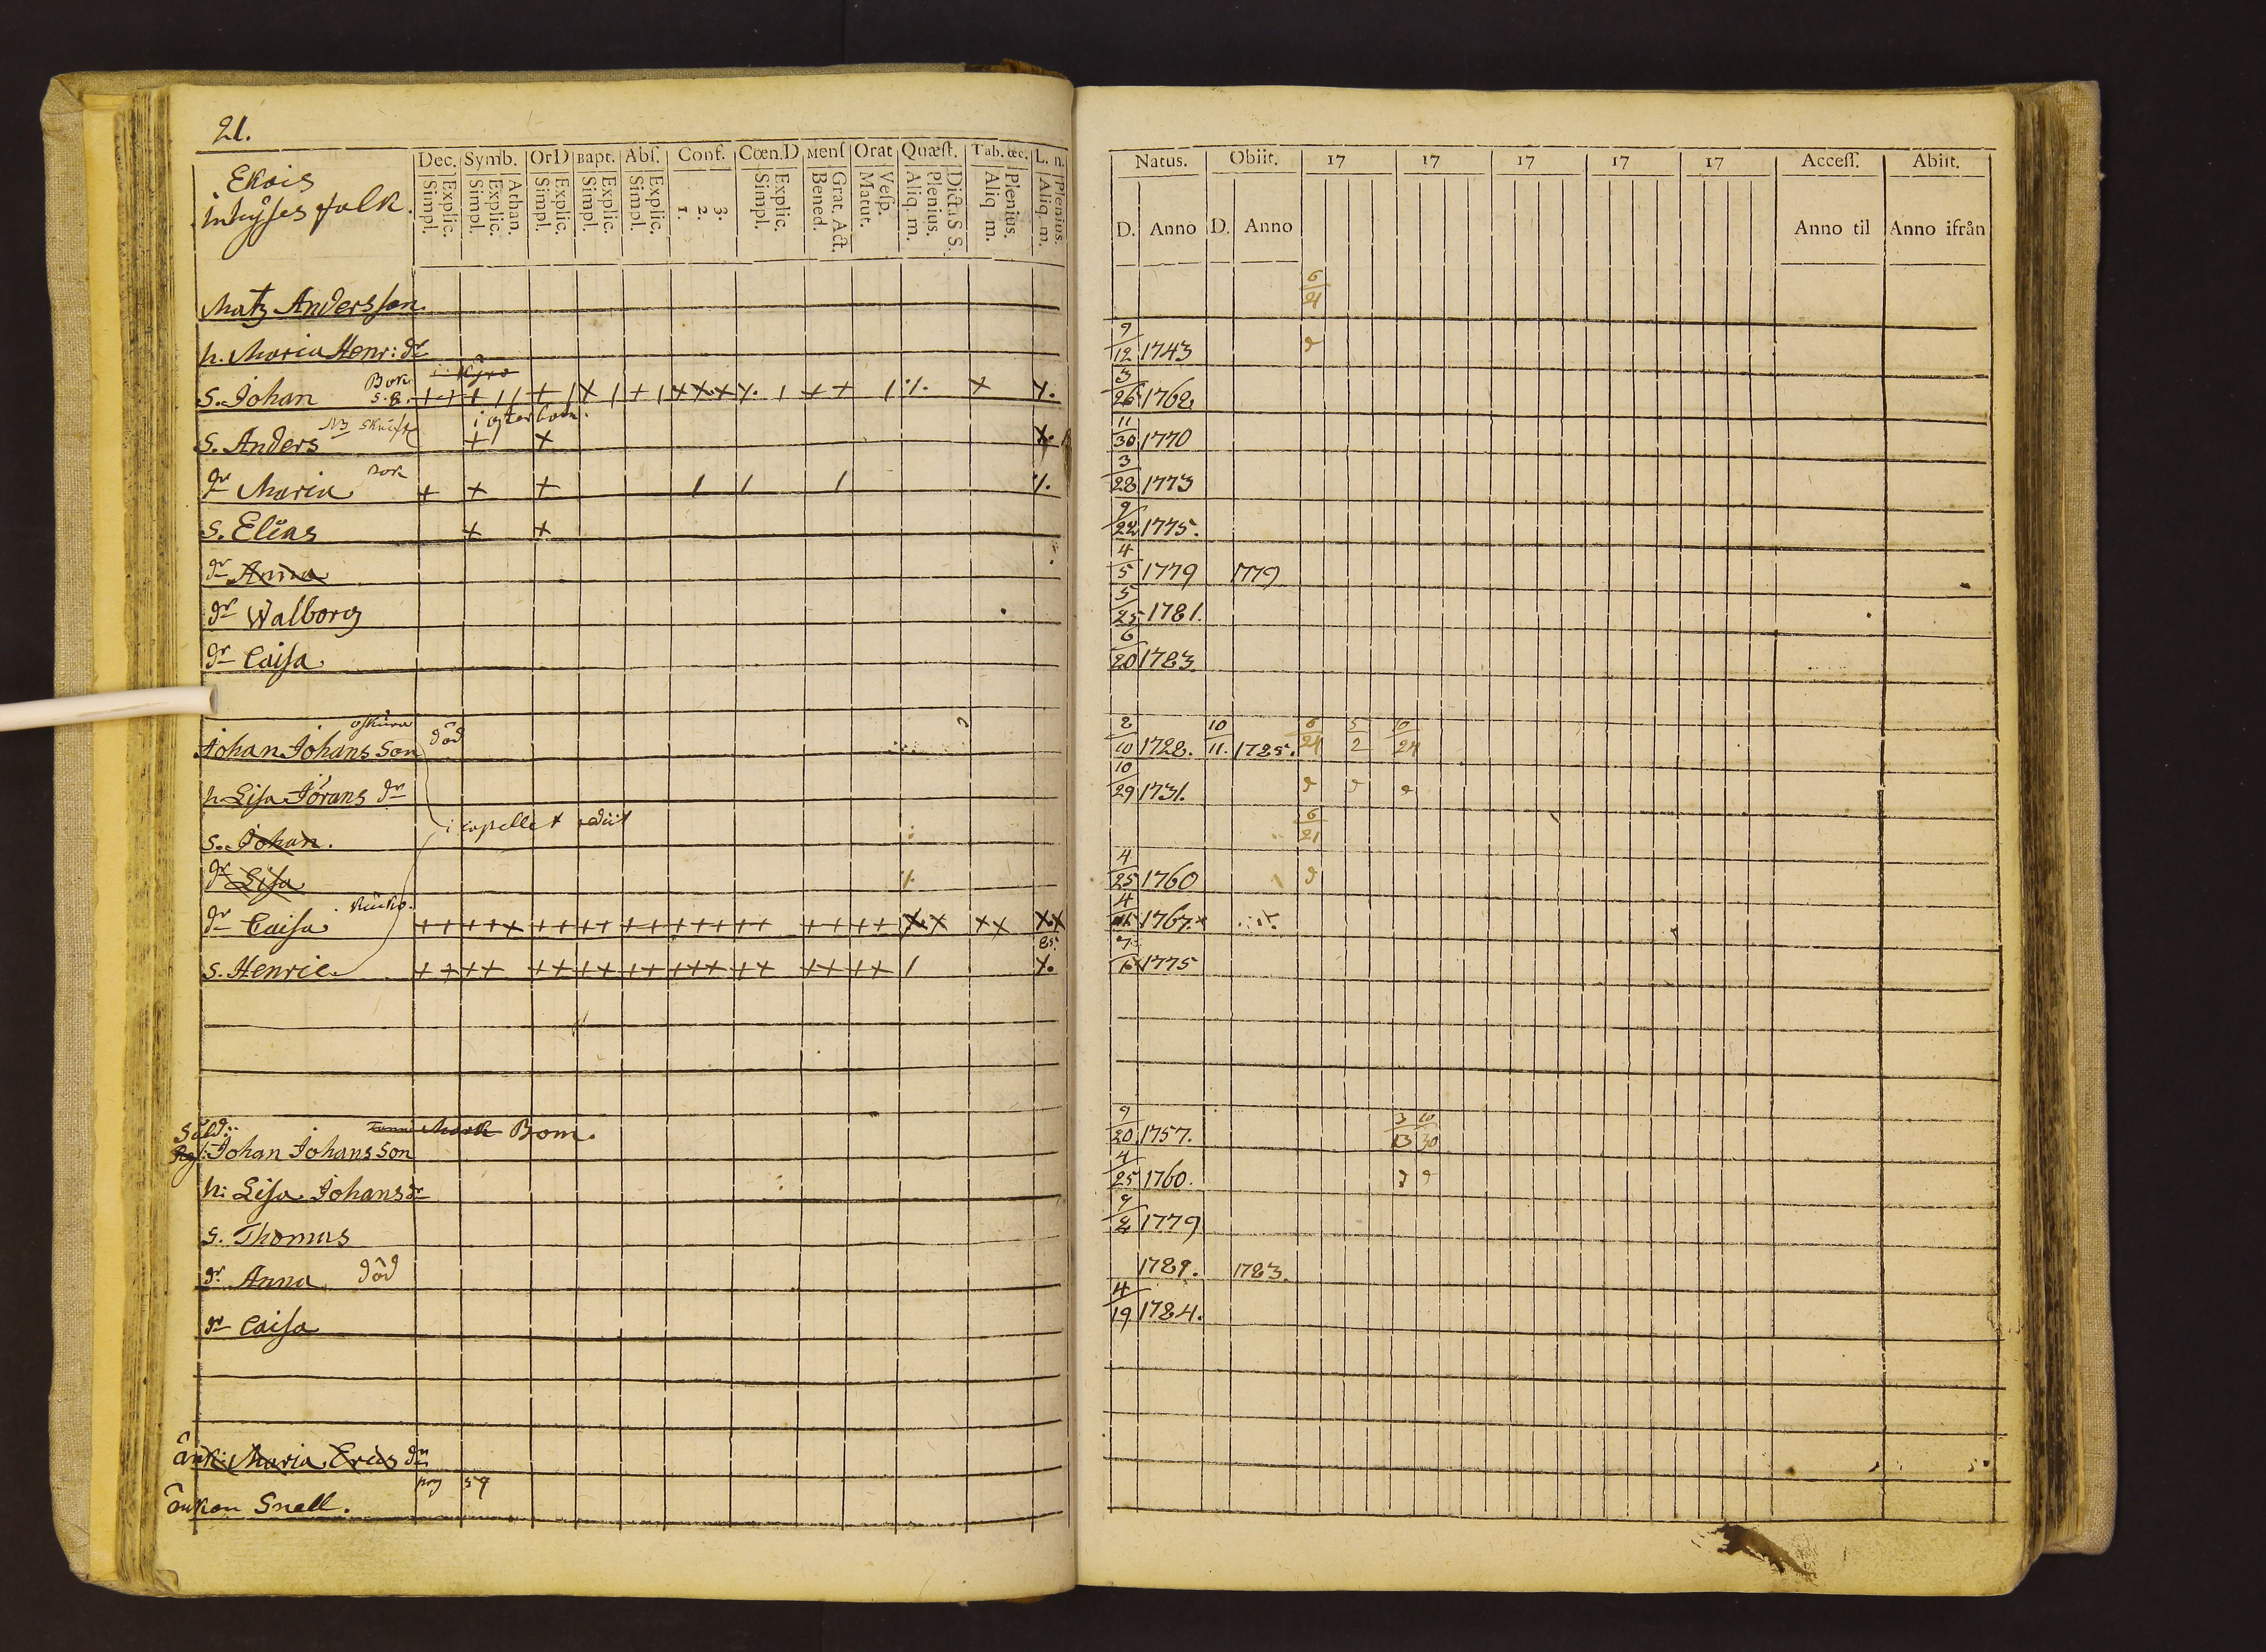 21.
Dec. Symb. OrD Bapt. Abs. Conf. Cœn.D. Mens Orat Quæst. Tab. œc. L. n.
Simpl. Explic. Simpl. Explic. Athan. Simpl. Explic. Simpl. Explic. Simpl. Explic. 1. 2. 3. Simpl. Explic. Bened. Grat. Act. Matut. Vesp. Aliq. m. Plenius. Dict. S S. Aliq m. Plenius. Aliq. m. Plenius.
Ekois
inhyses folk.
Matz Andersson.
h. Maria Henr: dr
i Kyro
S. Johan Bor
S. Anders
dr Maria
S. Elias
dr Anna
dr Walborg
dr Caisa
Johan Johans Son död
h. Lisa Jörans dr
i capellet rediit
S. Johan.
dr Lisa
dr Caisa
85.
S. Henric
Mark Bom.
Sold:
Johan Johans Son
h: Lisa Johans dr
S. Thomas
dr Anna död
dr Caisa
änk: Maria Erics dr
änkan Snell.
Natus. Obiit. 17 17 17 17 17 Access. Abiit.
D. Anno D. Anno Anno til Anno ifrån
6/21
9/12 1743
3/26 1762
11/30 1770
3/28 1773
9/22 1775.
4/5 1779 1779
5/25 1781.
6/20 1783
2/10 1728. 10/11. 1785. 6/21 5/2 10/24
10/29 1731.
6/21
4/25 1760
4 1767.
1775
9/20 1757. 3/13 10/30
4/25 1760.
1779
1781. 1783.
4/19 1784.